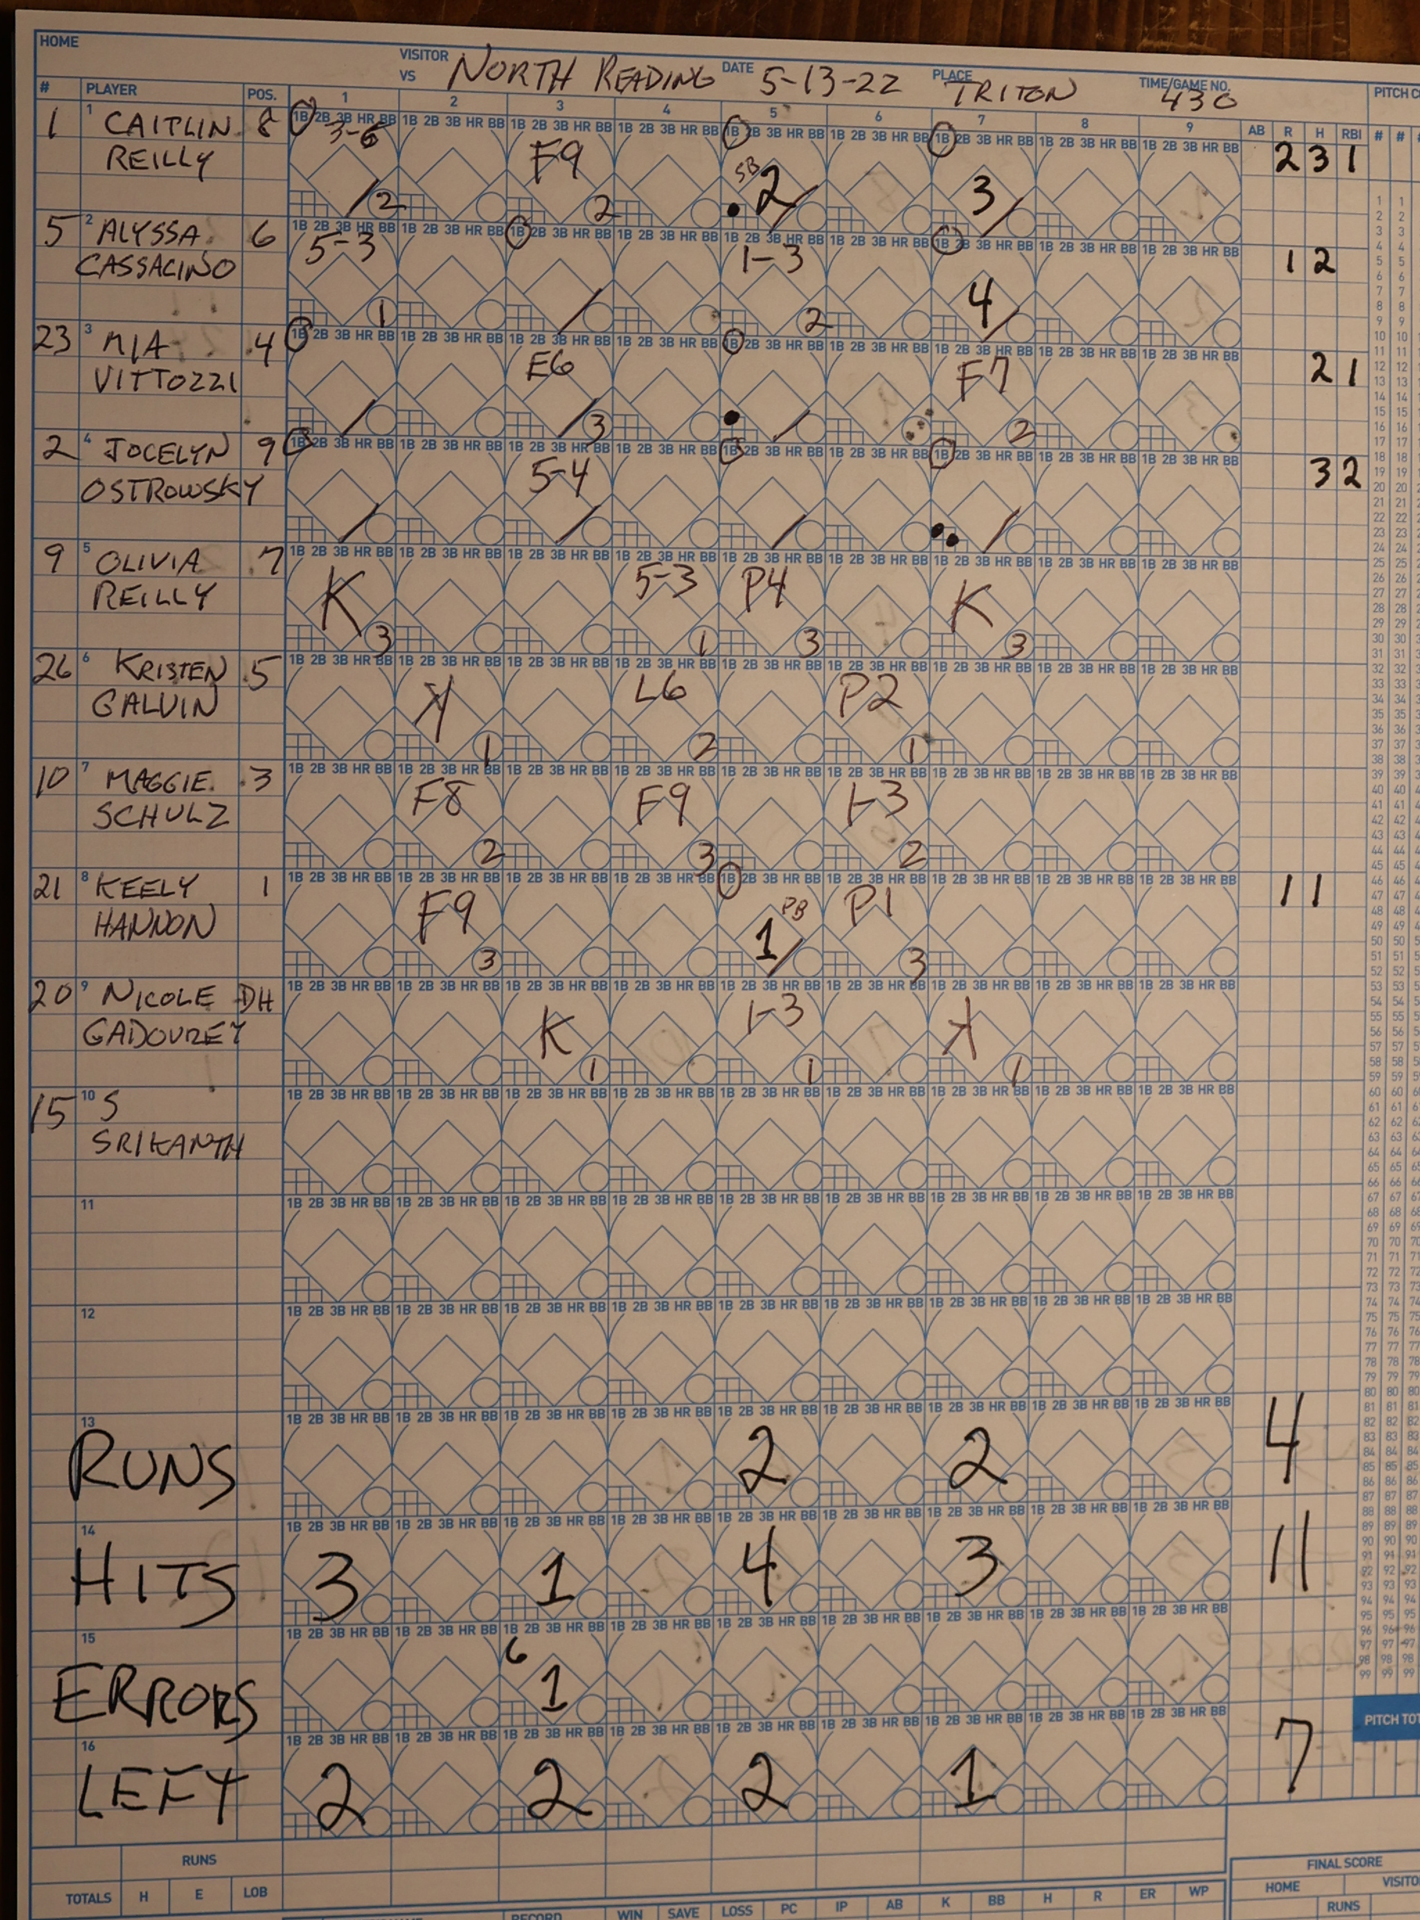 HOME
VISITOR
VS NORTH READING DATE 5-13-22 PLACE TRITON TIME/GAME NO. 430
# PLAYER POS. 1 2 3 4 5 6 7 8 9 AB R H RBI PITCH C
1 1 CAITLIN 8 3-6 F9 SB 2 3 2 3 1
REILLY 2 2
5 2 ALYSSA 6 5-3 1-3 4 1 2
CASSACINO 1 2
23 3 MIA 4 E6 F7 2 1
VITTOZZI 3 2
2 4 JOCELYN 9 5-4 3 2
OSTROWSKY
9 5 OLIVIA 7 K 5-3 P4 K
REILLY 3 1 3 3
26 6 KRISTEN 5 K L6 P2
GALVIN 1 2 1
10 7 MAGGIE 3 F8 F9 1-3
SCHULZ 2 3 2
21 8 KEELY 1 F9 PB 1 P1 1 1
HANNON 3 3
20 9 NICOLE DH K 1-3 K
GADOUREY 1 1 1
15 10 S
SRIKANTH
11
12
13
RUNS 2 2 4
14
HITS 3 1 4 3 11
15
ERRORS 6 1
16
LEFT 2 2 2 1 7
PITCH TOT
RUNS
TOTALS H E LOB
FINAL SCORE
HOME VISITO
RUNS
RECORD WIN SAVE LOSS PC IP AB K BB H R ER WP